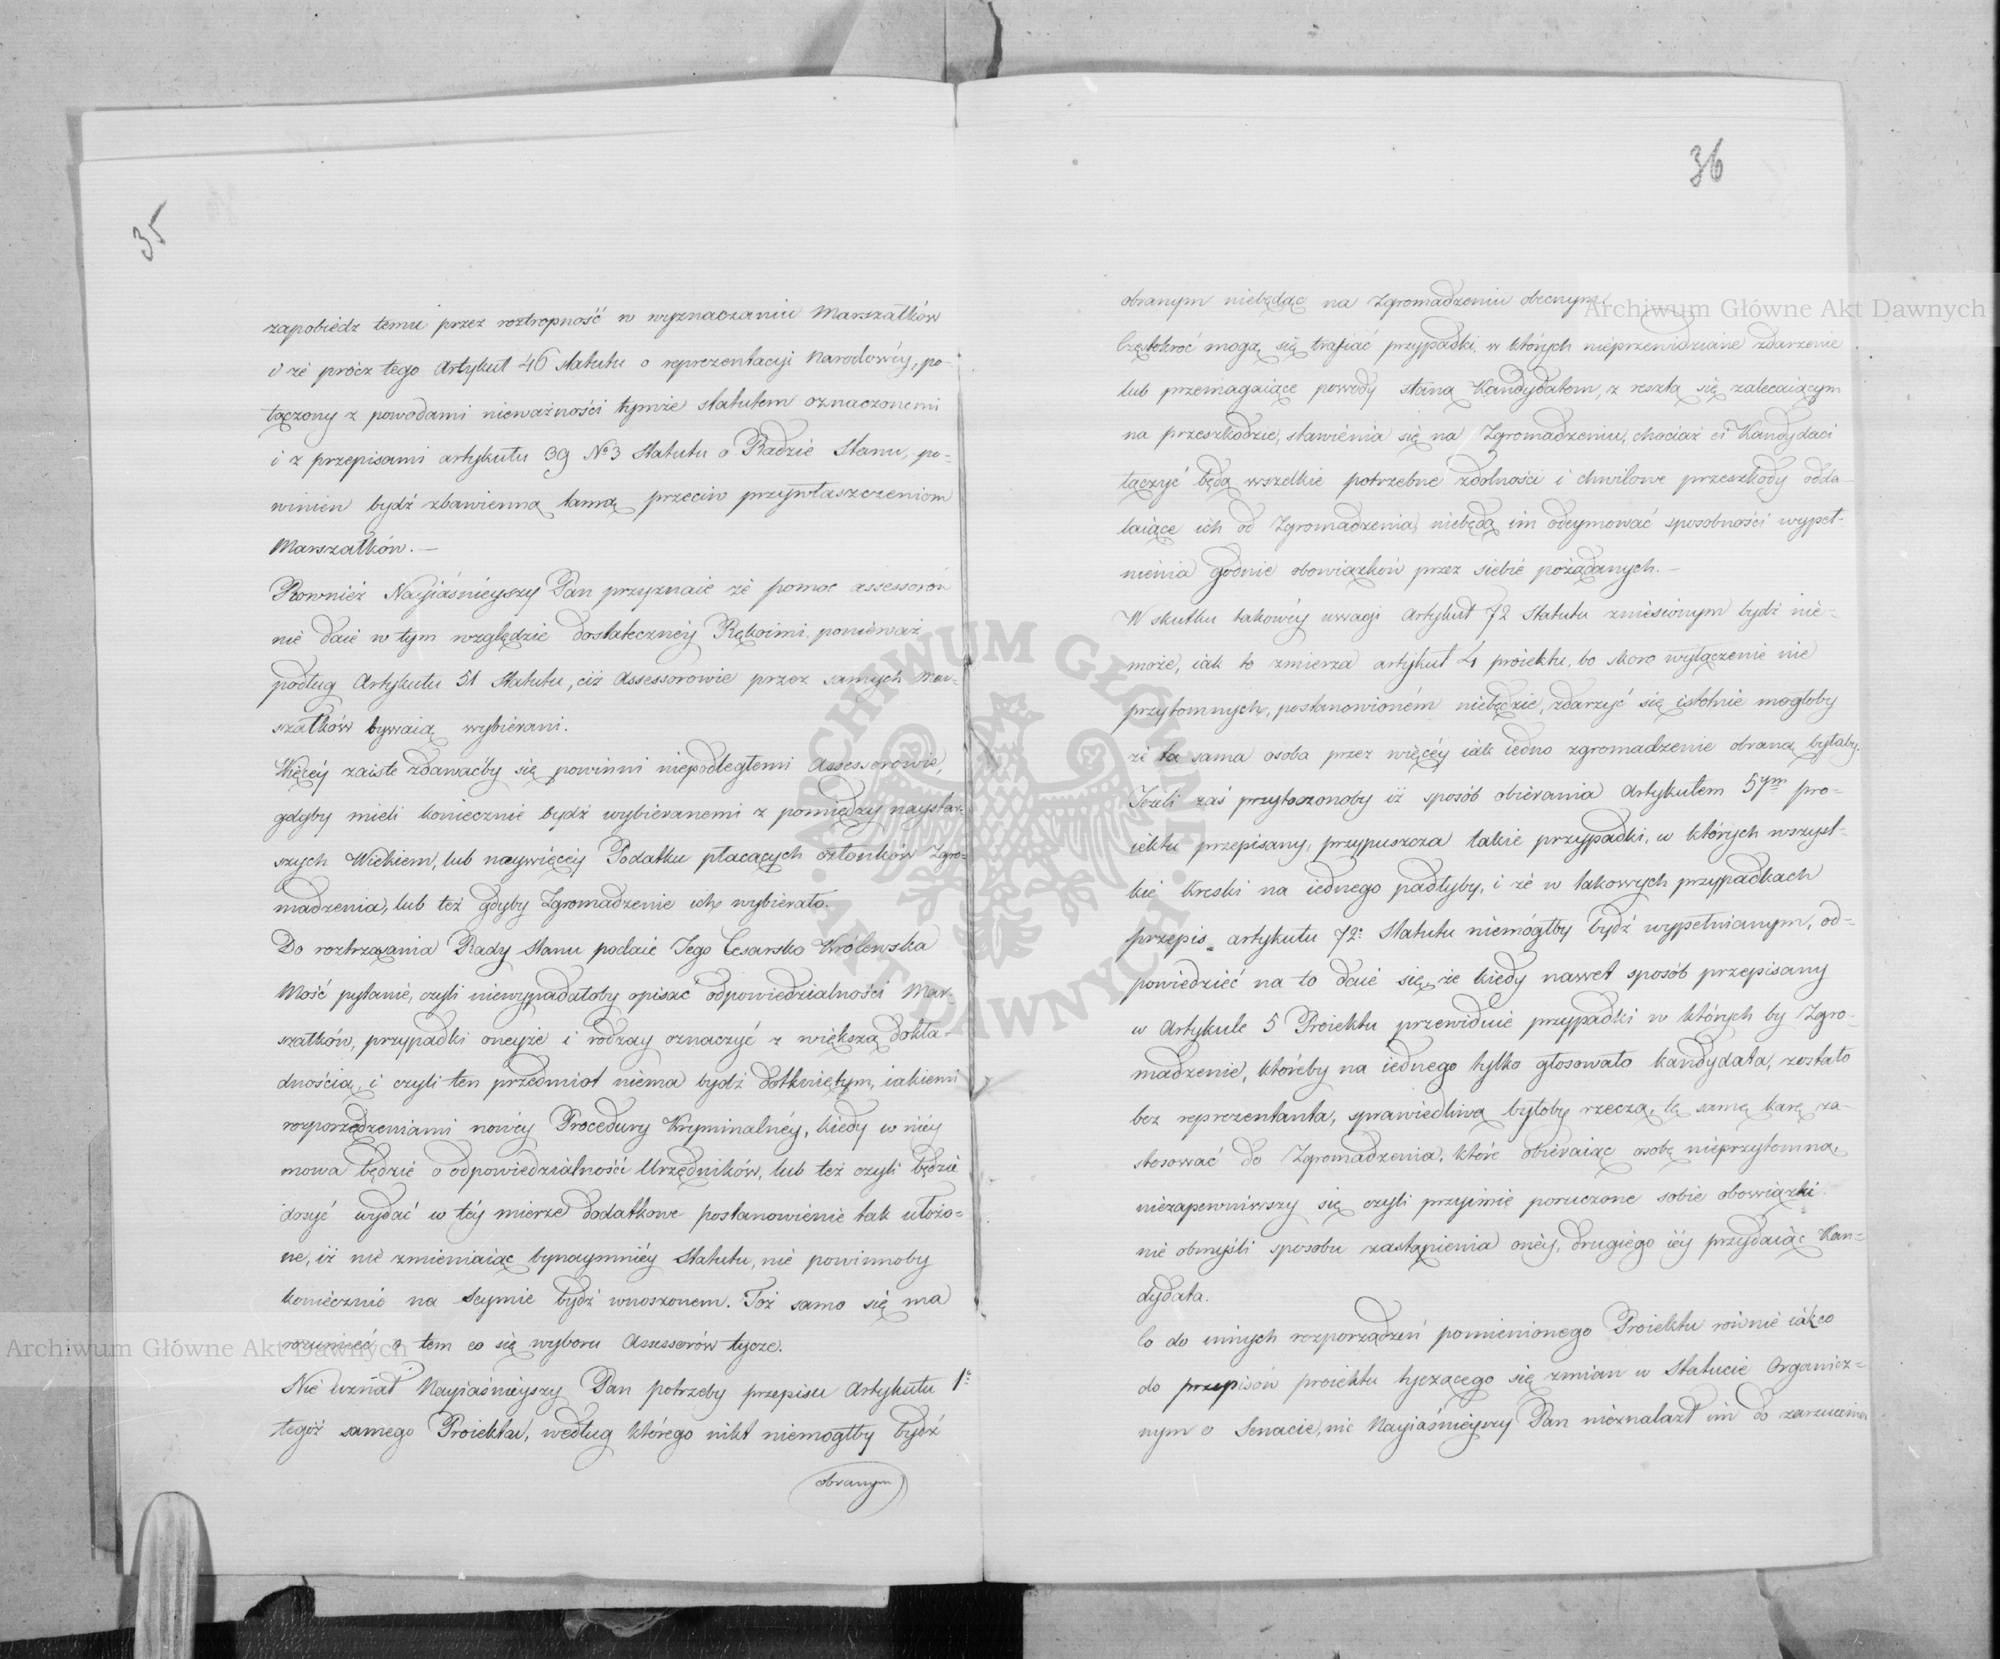 35
zapobiedz temu przez roztropność w wyznaczaniu Marszałków
i że prócz tego Artykuł 46 Statutu o reprezentacyi Narodowéy, po-
łączony z powodami nieważności tymże statutem oznaczonemi
i z przepisami artykułu 39 No 3 Statutu o Radzie Stanu, po-
winien bydź zbawienną tamą przeciw przywłaszczeniom
Marszałków. —
Rownież Nayiaśnieyszy Pan przyznaie że pomoc assessorów
nie daie w tym względzie dostateczney Rękoimi, ponieważ
podług Artykułu 51 Statutu, ciż Assessorowie przez samych Mar-
szałków bywaią wybierani.
Więcéy zaiste zdawaćby się powinni niepodległemi Assessorowie,
gdyby mieli koniecznie bydź wybieranemi z pomiędzy naystar-
szych Wiekiem, lub naywięcéy Podatku płacących członków Zgro-
madzenia, lub też gdyby Zgromadzenie ich wybierało.
Do roztrząsania Rady Stanu podaie Jego Cesarsko Królewska
Mość pytanie, czyli niewypadałoby opisać odpowiedzialności Mar-
szałków, przypadki oneyże i rodzay oznaczyć z większą dokła-
dnością, i czyli ten przedmiot niema bydź dotkniętym, iakiemi
rozporządzeniami nowéy Procedury Kryminalnéy, kiedy w niéy
mowa będzie o odpowiedzialności Urzędników, lub też czyli będzie
dosyć wydać w téy mierze dodatkowe postanowienie tak ułożo-
ne, iż nie zmieniaiąc bynaymniéy Statutu, nie powinnoby
koniecznie na Seymie bydź wnoszonem. Toż samo się ma
rozumieć o tem co się wyboru Assessorów tycze.
Nie uznał Nayiaśnieyszy Pan potrzeby przepisu Artykułu 1o
tegoż samego Proiektu, według którego nikt niemogłby bydź
obranym
36
obranym niebędąc na Zgromadzeniu obecnym.
Częstokroć mogą się trafiać przypadki, w których nieprzewidziane zdarzenie
lub przemagaiące powody staną Kandydatom, z resztą się zalecaiącym
na przeszkodzie, stawienia się na Zgromadzeniu, chociaż ci Kandydaci
łączyć będą wszelkie potrzebne zdolności i chwilowe przeszkody odda-
laiące ich od Zgromadzenia, niebędą im odeymować sposobności wypeł-
nienia godnie obowiązków przez siebie pożądanych. —
W skutku takowéy uwagi Artykuł 72 Statutu zniesionym bydź nie-
może, iak to zmierza artykuł 4 proiektu, bo skoro wyłączenie nie
przytomnych, postanowioném niebędzie, zdarzyć się istotnie mogłoby
że ta sama osoba przez więcéy iak iedno zgromadzenie obraną byłaby.
Jeżeli zaś przytoczonoby iż sposób obierania Artykułem 5ym pro-
iektu przepisany, przypuszcza takie przypadki, w których wszyst-
kie kreski na iednego padłyby, i że w takowych przypadkach
przepis artykułu 72o Statutu niemógłby bydź wypełnianym, od-
powiedzieć na to daie się, że kiedy nawet sposób przepisany
w Artykule 5 Proiektu przewiduie przypadki w których by Zgro-
madzenie, któreby na iednego tylko głosowało kandydata, zostało
bez reprezentanta, sprawiedliwą byłoby rzeczą, tę samę karę za-
stosować do Zgromadzenia, które obieraiąc osobę nieprzytomną,
niezapewniwszy się czyli przyimie poruczone sobie obowiązki
nie obmyśli sposobu zastąpienia onéy, drugiego iéy przydaiąc Kan-
dydata.
Co do innych rozporządzeń pomienionego Proiektu równie iako
do przepisów proiektu tyczącego się zmian w Statucie Organicz-
nym o Senacie, nic Nayiaśnieyszy Pan nieznalazł im do zarzucenia
Archiwum Główne Akt Dawnych
Archiwum Główne Akt Dawnych
ARCHIWUM GŁÓWNE AKT DAWNYCH